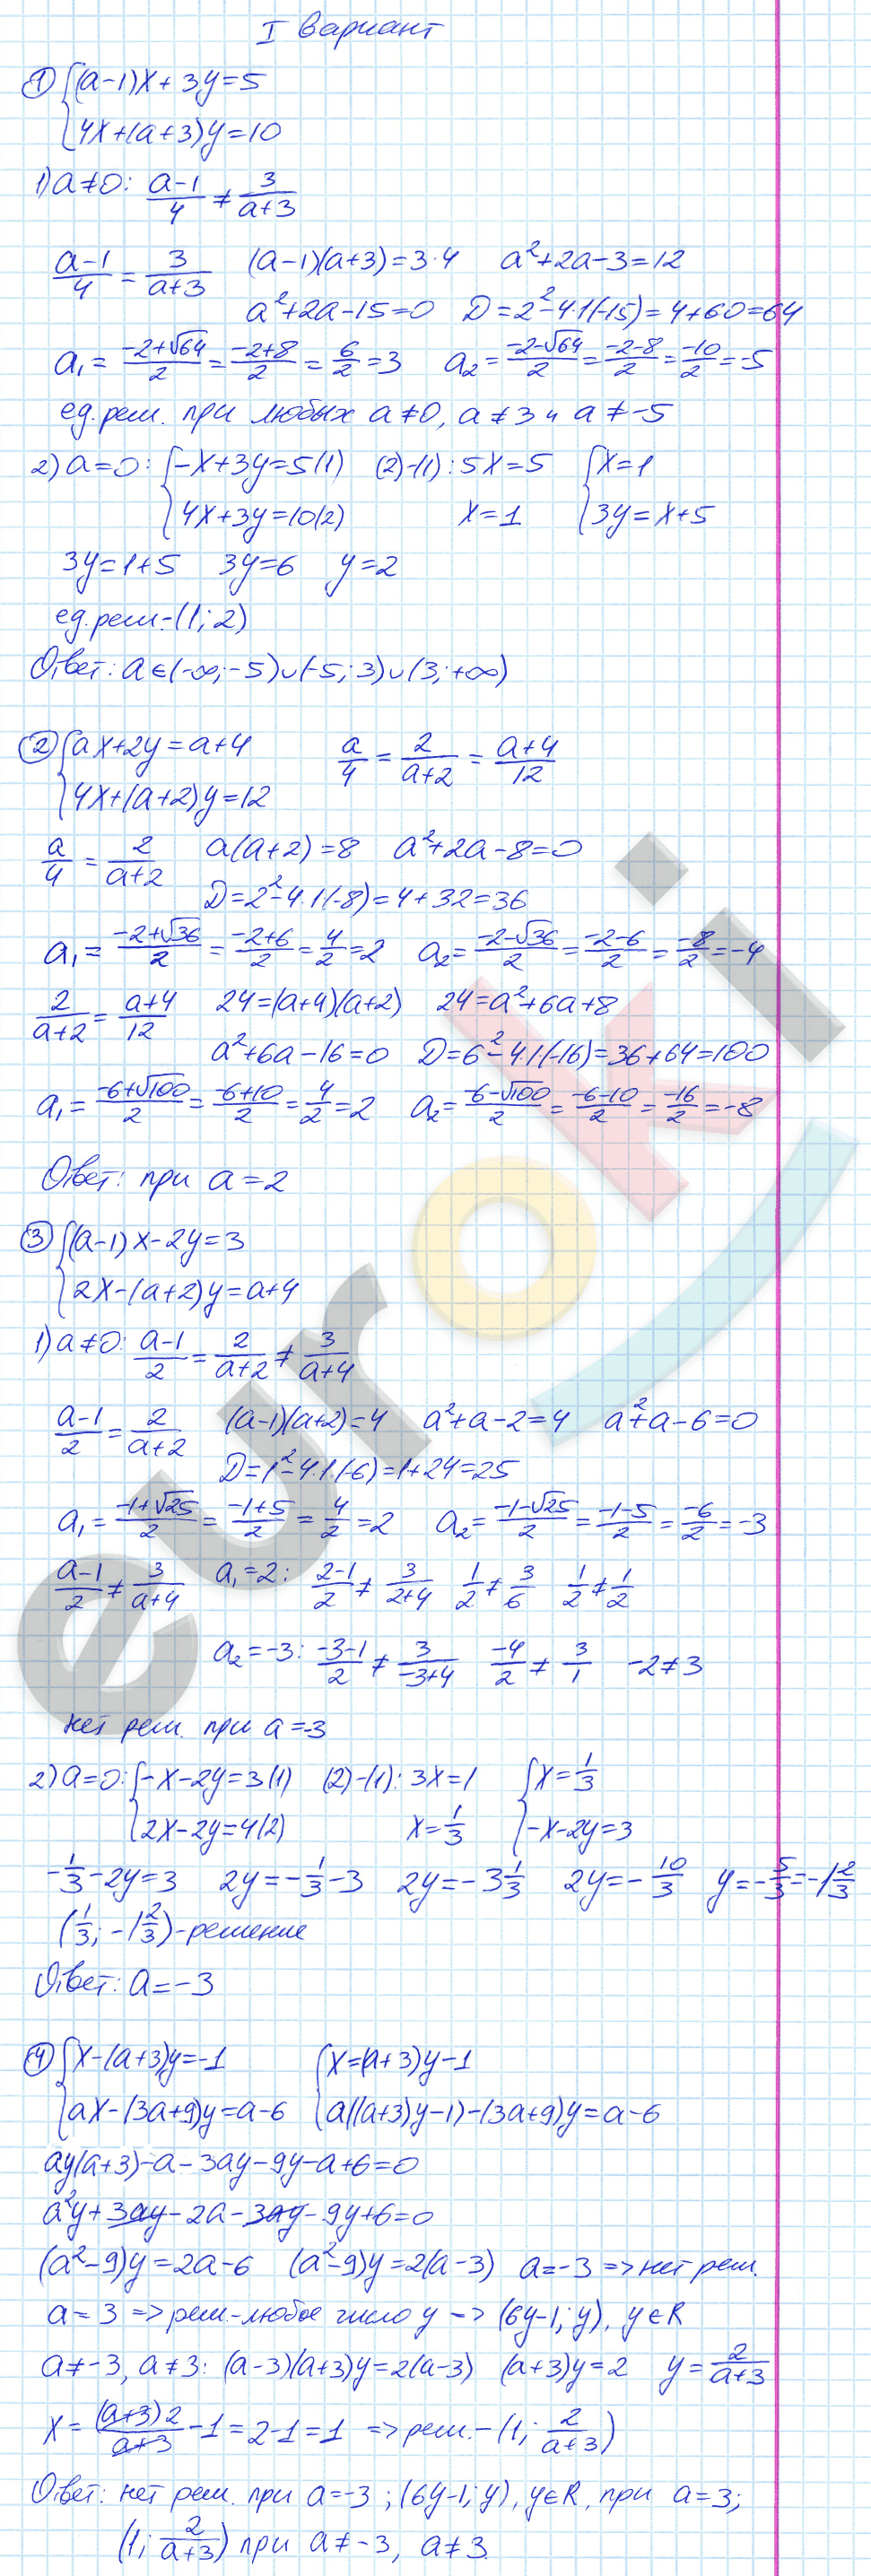 I вариант
① {(a-1)x+3y=5
{4x+(a+3)y=10
1) a≠0: (a-1)/4 ≠ 3/(a+3)
(a-1)/4 = 3/(a+3) (a-1)(a+3)=3·4 a²+2a-3=12
a²+2a-15=0 D=2²-4·1(-15)=4+60=64
a₁= (-2+√64)/2 = (-2+8)/2 = 6/2 =3 a₂= (-2-√64)/2 = (-2-8)/2 = -10/2 =-5
ед.реш. при любых a≠0, a≠3 и a≠-5
2) a=0: {-x+3y=5(1) (2)-(1): 5x=5 {x=1
{4x+3y=10(2) x=1 {3y=x+5
3y=1+5 3y=6 y=2
ед.реш.-(1;2)
Ответ: a∈(-∞;-5)∪(-5;3)∪(3;+∞)
② {ax+2y=a+4 a/4 = 2/(a+2) = (a+4)/12
{4x+(a+2)y=12
a/4 = 2/(a+2) a(a+2)=8 a²+2a-8=0
D=2²-4·1(-8)=4+32=36
a₁= (-2+√36)/2 = (-2+6)/2 = 4/2 =2 a₂= (-2-√36)/2 = (-2-6)/2 = -8/2 =-4
2/(a+2) = (a+4)/12 24=(a+4)(a+2) 24=a²+6a+8
a²+6a-16=0 D=6²-4·1(-16)=36+64=100
a₁= (-6+√100)/2 = (-6+10)/2 = 4/2 =2 a₂= (-6-√100)/2 = (-6-10)/2 = -16/2 =-8
Ответ: при a=2
③ {(a-1)x-2y=3
{2x-(a+2)y=a+4
1) a≠0: (a-1)/2 = 2/(a+2) ≠ 3/(a+4)
(a-1)/2 = 2/(a+2) (a-1)(a+2)=4 a²+a-2=4 a²+a-6=0
D=1²-4·1·(-6)=1+24=25
a₁= (-1+√25)/2 = (-1+5)/2 = 4/2 =2 a₂= (-1-√25)/2 = (-1-5)/2 = -6/2 =-3
(a-1)/2 ≠ 3/(a+4) a₁=2: (2-1)/2 ≠ 3/(2+4) 1/2 ≠ 3/6 1/2 ≠ 1/2
a₂=-3: (-3-1)/2 ≠ 3/(-3+4) -4/2 ≠ 3/1 -2≠3
нет реш. при a=-3
2) a=0: {-x-2y=3(1) (2)-(1): 3x=1 {x=1/3
{2x-2y=4(2) x=1/3 {-x-2y=3
-1/3-2y=3 2y=-1/3-3 2y=-3 1/3 2y=-10/3 y=-5/3=-1 2/3
(1/3; -1 2/3)-решение
Ответ: a=-3
④ {x-(a+3)y=-1 {x=(a+3)y-1
{ax-(3a+9)y=a-6 {a((a+3)y-1)-(3a+9)y=a-6
ay(a+3)-a-3ay-9y-a+6=0
a²y+3ay-2a-3ay-9y+6=0
(a²-9)y=2a-6 (a²-9)y=2(a-3) a=-3 => нет реш.
a=3 => реш.-любое число y -> (6y-1;y), y∈R
a≠-3, a≠3: (a-3)(a+3)y=2(a-3) (a+3)y=2 y= 2/(a+3)
x= (a+3)2/(a+3) -1=2-1=1 => реш.-(1; 2/(a+3))
Ответ: нет реш. при a=-3; (6y-1;y), y∈R, при a=3;
(1; 2/(a+3)) при a≠-3, a≠3
euroki